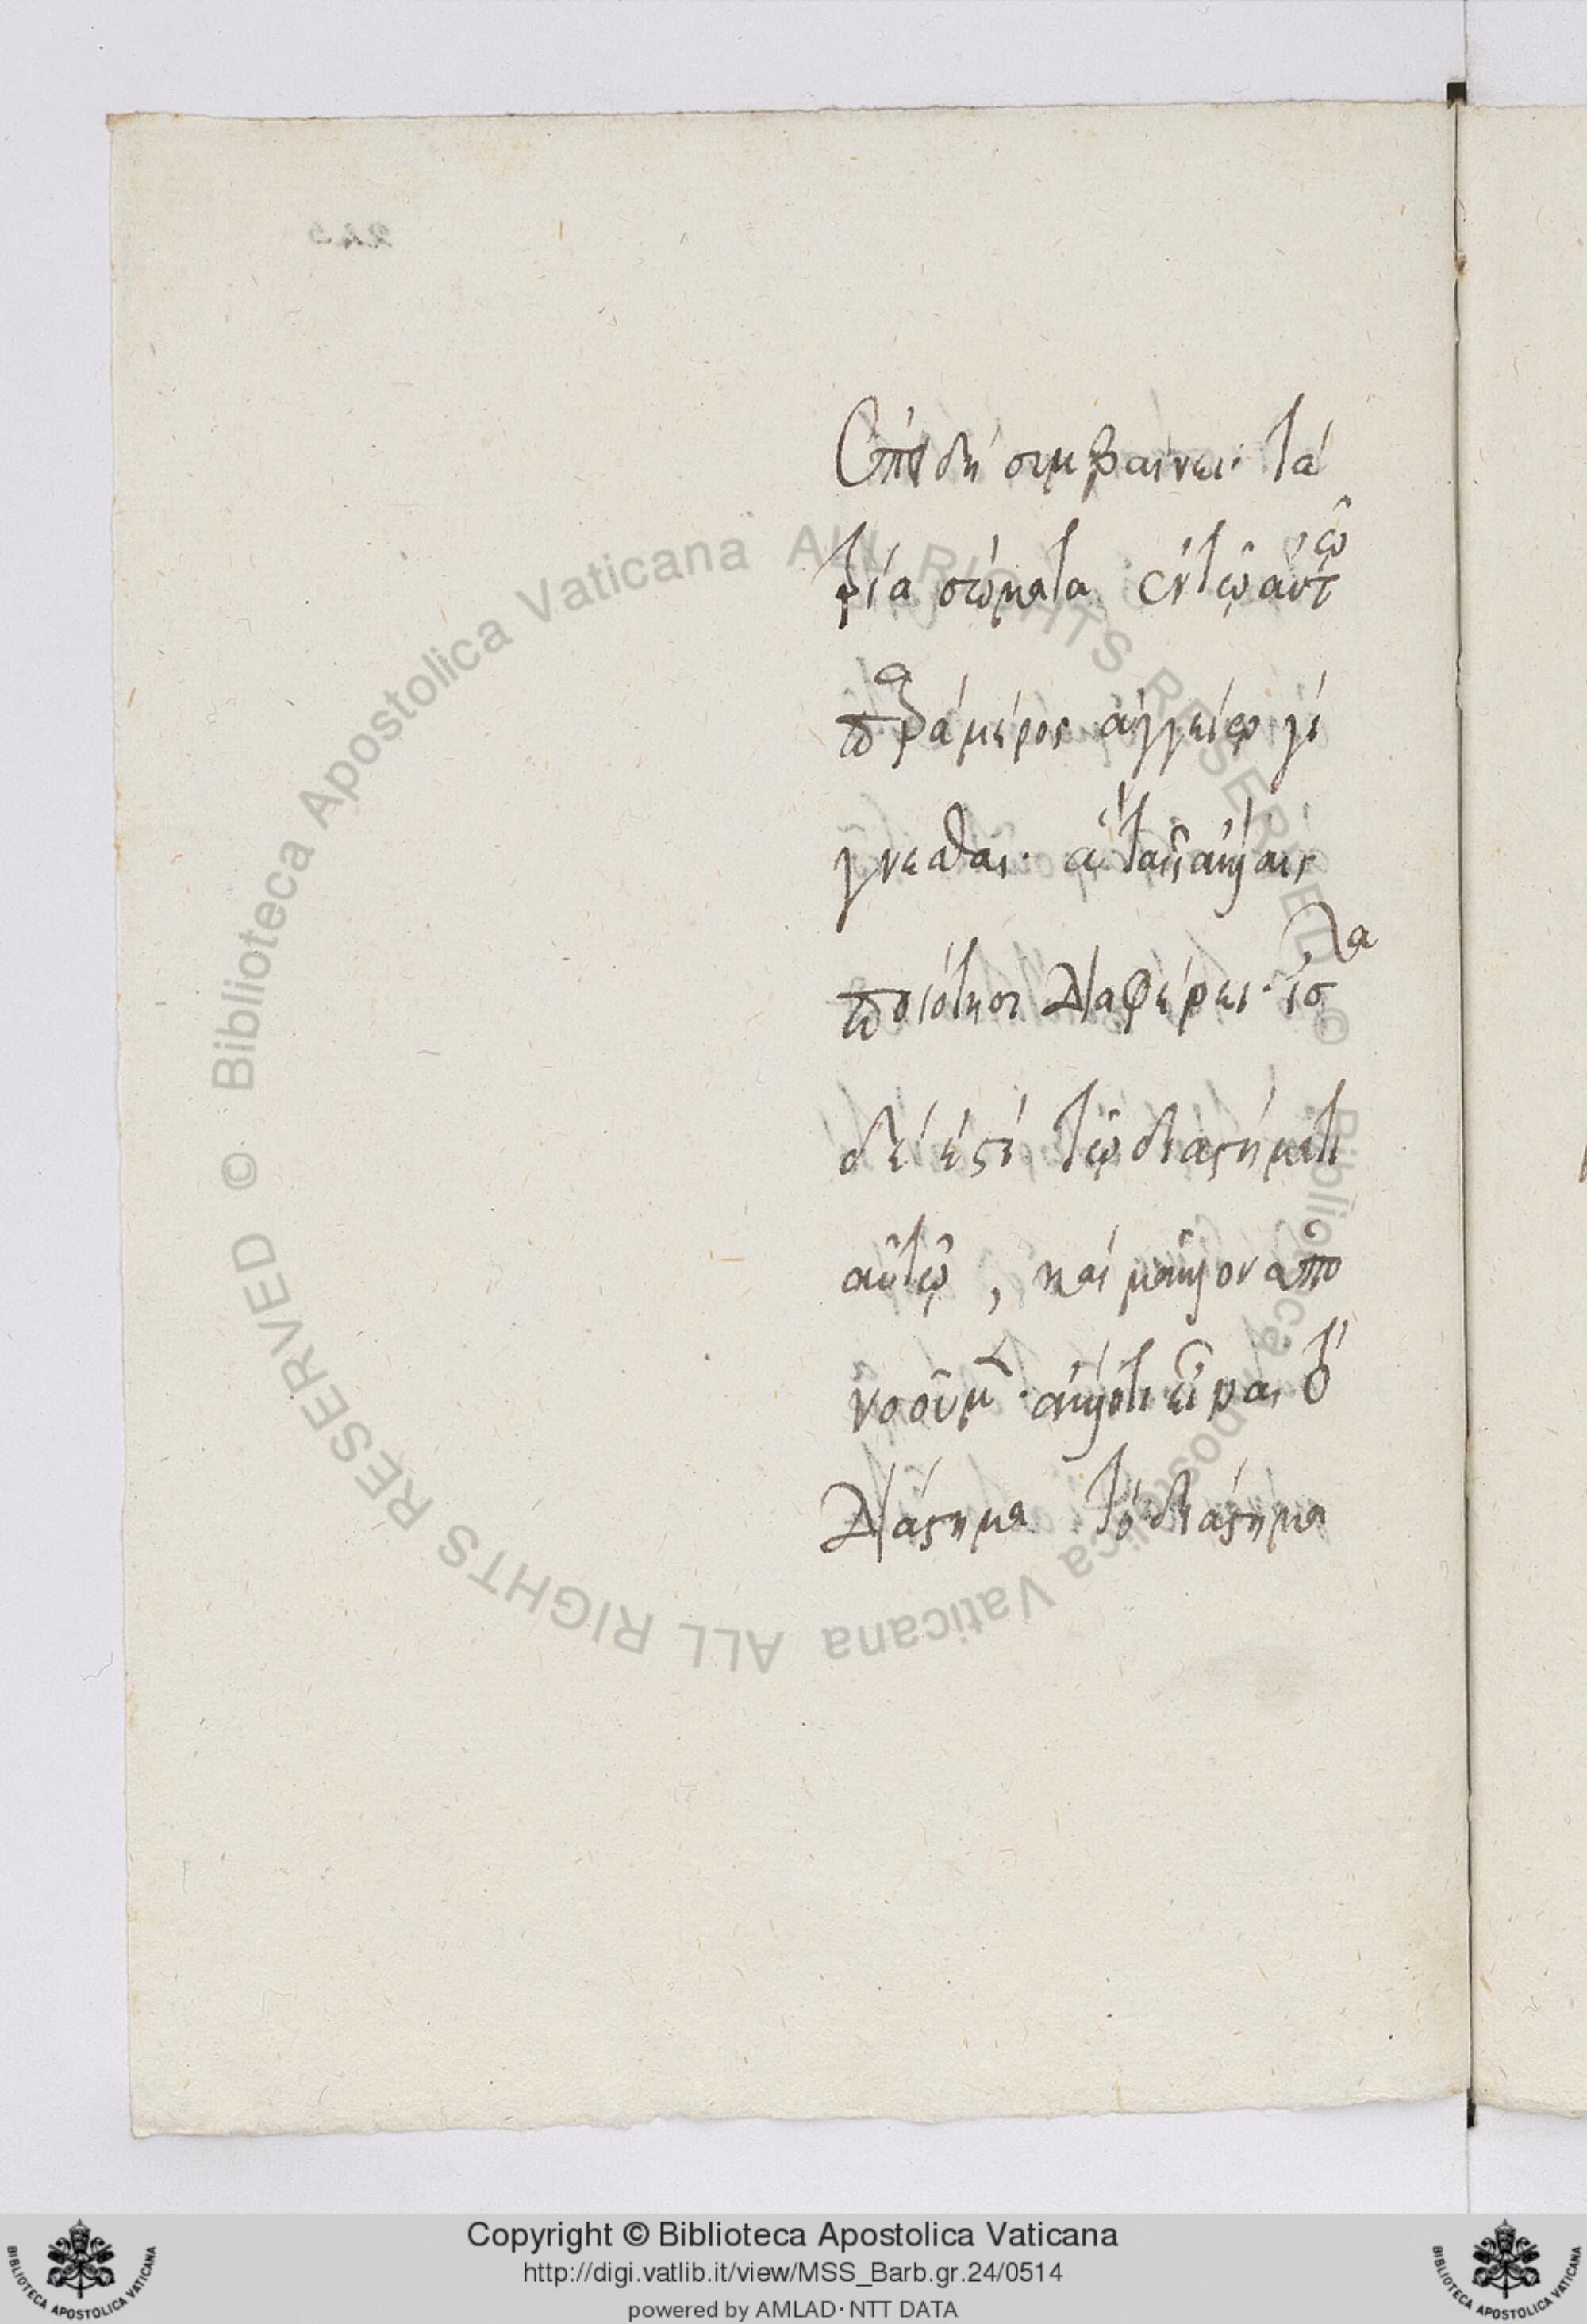 Ἐπειδὴ συμβαίνει· τὰ
τρία σώματα ἐν τῷ αὐτῷ
παρὰ μέρος ἀγγείῳ γί
γνεσθαι· ἃ ταῖς
ποιότησι διαφέρει· ἴσα
δέ ἐστι τῷ διαστήματι
αὐτῷ, καὶ
διάστημα τὸ διάστημα
© Biblioteca Apostolica Vaticana ALL RIGHTS RESERVED
© Biblioteca Apostolica Vaticana ALL RIGHTS RESERVED
BIBLIOTECA APOSTOLICA VATICANA
Copyright © Biblioteca Apostolica Vaticana
http://digi.vatlib.it/view/MSS_Barb.gr.24/0514
powered by AMLAD·NTT DATA
BIBLIOTECA APOSTOLICA VATICANA